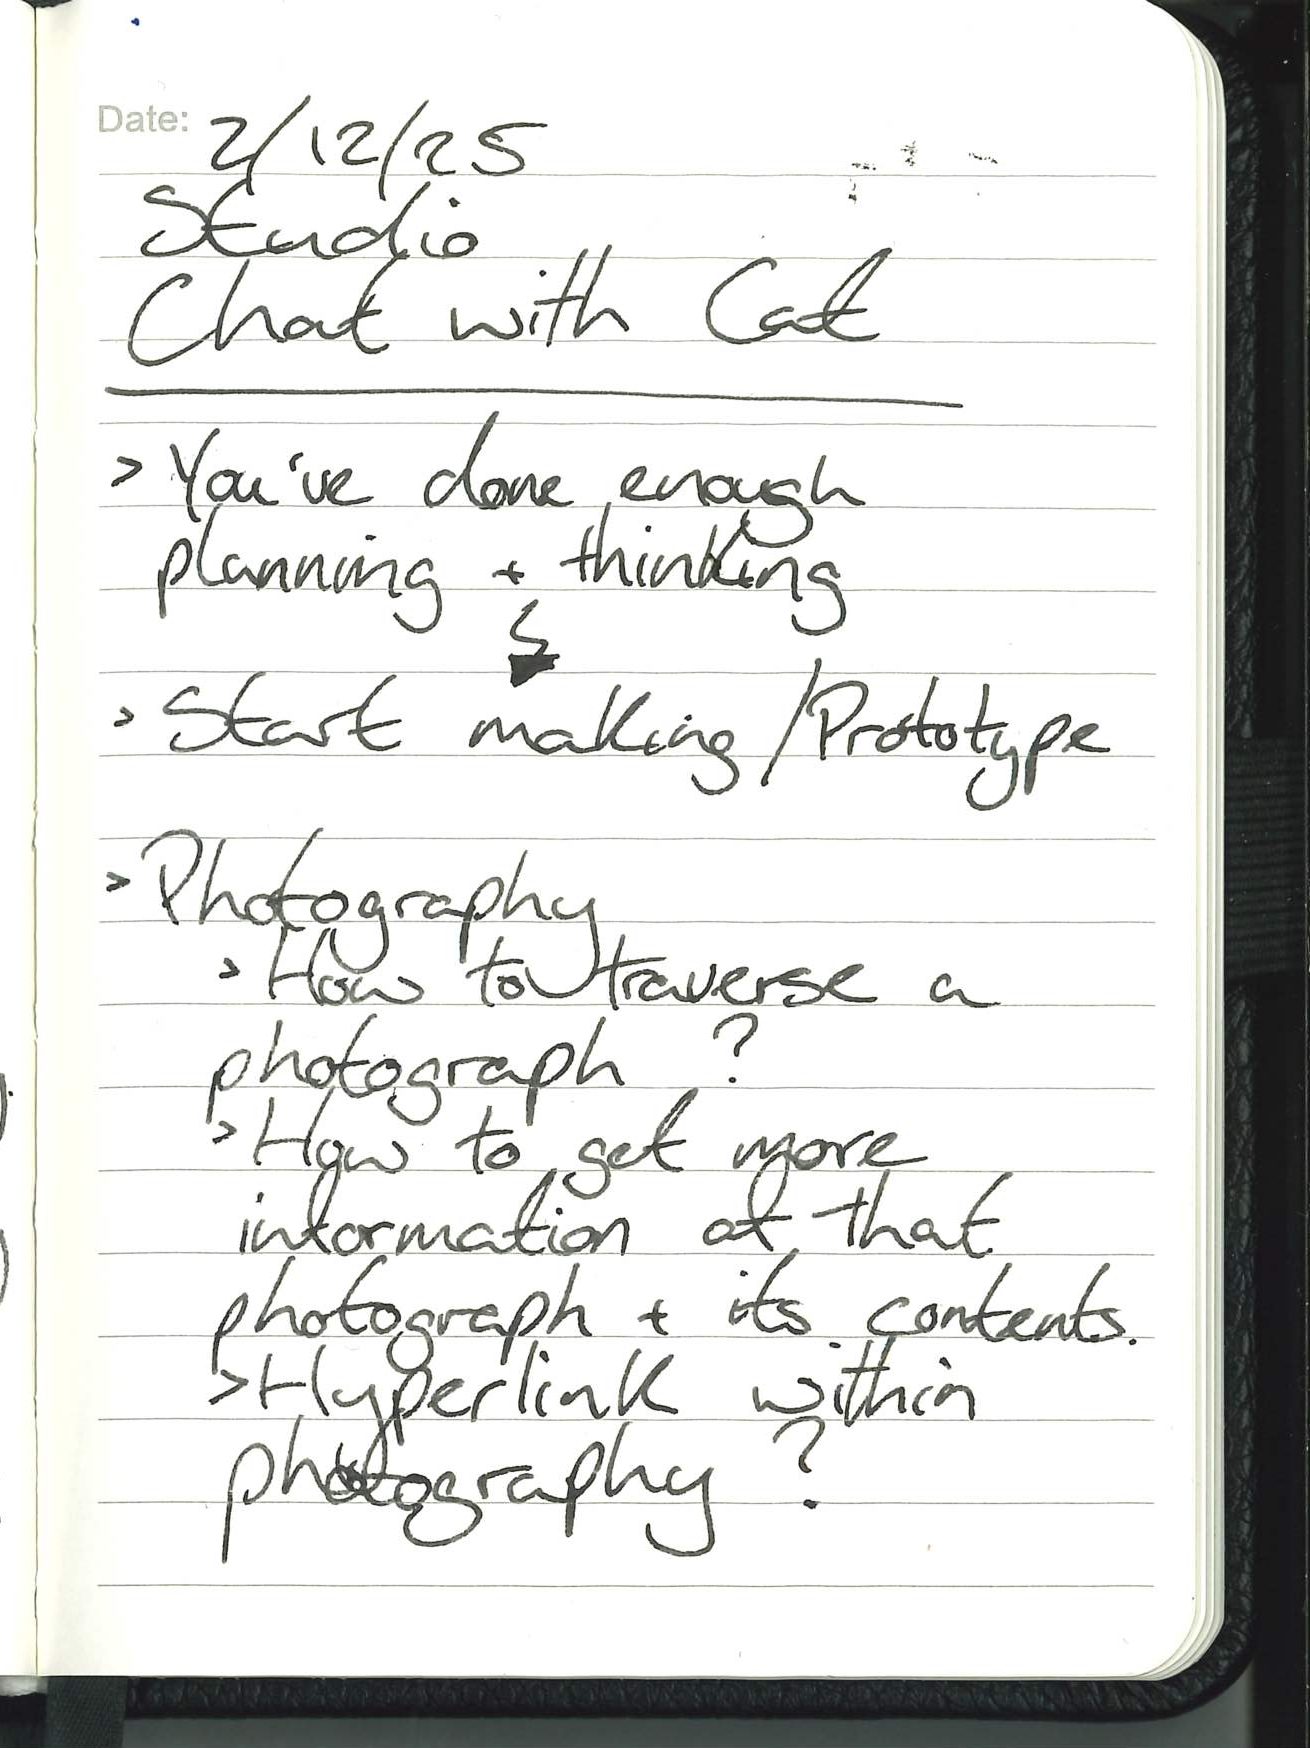 Date: 2/12/25
Studio
Chat with Cat
> You've done enough
planning + thinking
> Start making/Prototype
> Photography
> How to traverse a
photograph ?
> How to get more
information of that
photograph + its contents.
> Hyperlink within
photography ?